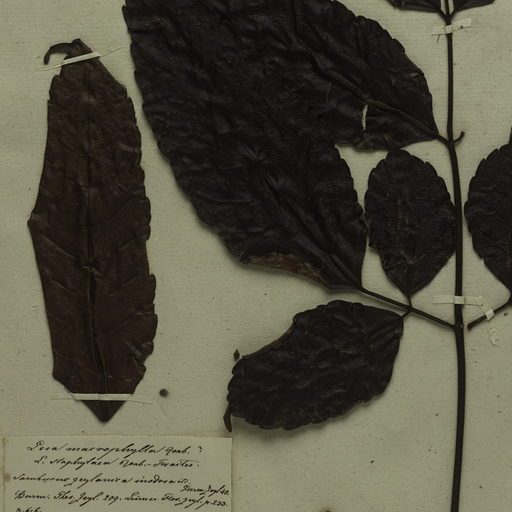 Leea macrophylla Roxb. ?
L. staphylaea Roxb. – Twaites.
Sambucus zeylanica inodora
Herm. Zeyl. 40.
Burm. Thes. Zeyl. 209. Linnei Flor. zeyl. p. 233.